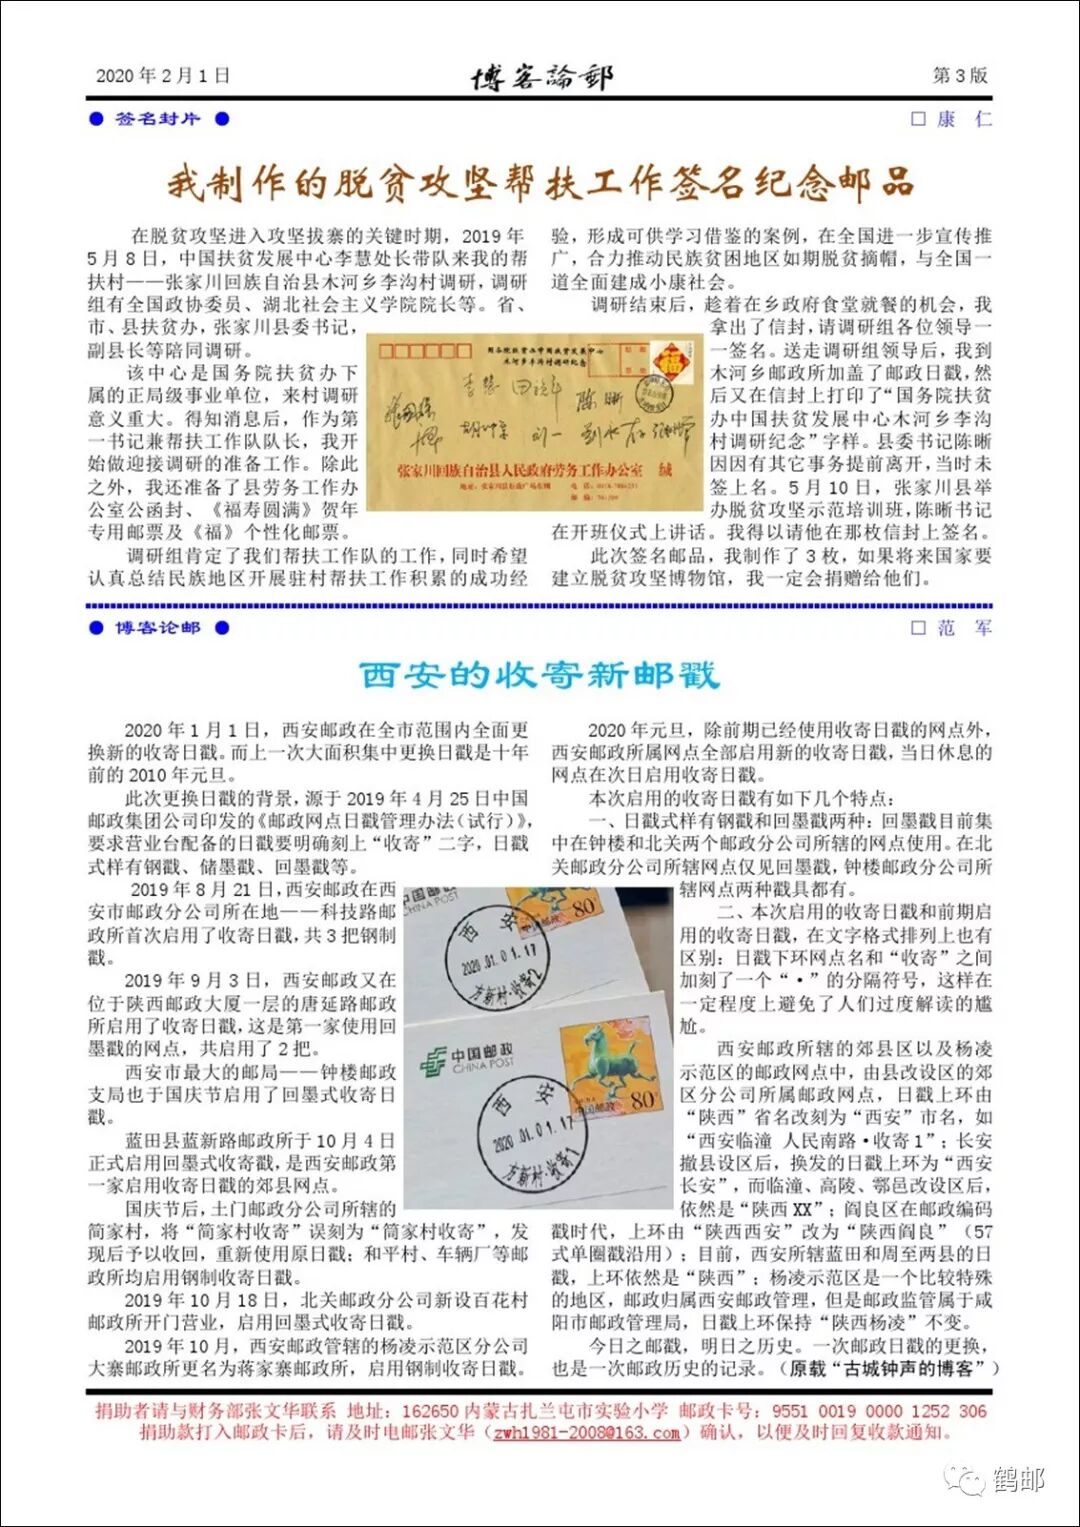 2020年2月1日
博客論郵
第3版
● 签名封片 ●
□ 康 仁
我制作的脱贫攻坚帮扶工作签名纪念邮品
在脱贫攻坚进入攻坚拔寨的关键时期，2019年
5月8日，中国扶贫发展中心李慧处长带队来我的帮
扶村——张家川回族自治县木河乡李沟村调研，调研
组有全国政协委员、湖北社会主义学院院长等。省、
市、县扶贫办，张家川县委书记，
副县长等陪同调研。
该中心是国务院扶贫办下
属的正局级事业单位，来村调研
意义重大。得知消息后，作为第
一书记兼帮扶工作队队长，我开
始做迎接调研的准备工作。除此
之外，我还准备了县劳务工作办
公室公函封、《福寿圆满》贺年
专用邮票及《福》个性化邮票。
调研组肯定了我们帮扶工作队的工作，同时希望
认真总结民族地区开展驻村帮扶工作积累的成功经
验，形成可供学习借鉴的案例，在全国进一步宣传推
广，合力推动民族贫困地区如期脱贫摘帽，与全国一
道全面建成小康社会。
调研结束后，趁着在乡政府食堂就餐的机会，我
拿出了信封，请调研组各位领导一
一签名。送走调研组领导后，我到
木河乡邮政所加盖了邮政日戳，然
后又在信封上打印了“国务院扶贫
办中国扶贫发展中心木河乡李沟
村调研纪念”字样。县委书记陈晰
因因有其它事务提前离开，当时未
签上名。5月10日，张家川县举
办脱贫攻坚示范培训班，陈晰书记
在开班仪式上讲话。我得以请他在那枚信封上签名。
此次签名邮品，我制作了3枚，如果将来国家要
建立脱贫攻坚博物馆，我一定会捐赠给他们。
国务院扶贫办中国扶贫发展中心
木河乡李沟村调研纪念
福
张家川回族自治县人民政府劳务工作办公室 缄
● 博客论邮 ●
□ 范 军
西安的收寄新邮戳
2020年1月1日，西安邮政在全市范围内全面更
换新的收寄日戳。而上一次大面积集中更换日戳是十年
前的2010年元旦。
此次更换日戳的背景，源于2019年4月25日中国
邮政集团公司印发的《邮政网点日戳管理办法（试行）》，
要求营业台配备的日戳要明确刻上“收寄”二字，日戳
式样有钢戳、储墨戳、回墨戳等。
2019年8月21日，西安邮政在西
安市邮政分公司所在地——科技路邮
政所首次启用了收寄日戳，共3把钢制
戳。
2019年9月3日，西安邮政又在
位于陕西邮政大厦一层的唐延路邮政
所启用了收寄日戳，这是第一家使用回
墨戳的网点，共启用了2把。
西安市最大的邮局——钟楼邮政
支局也于国庆节启用了回墨式收寄日
戳。
蓝田县蓝新路邮政所于10月4日
正式启用回墨式收寄戳，是西安邮政第
一家启用收寄日戳的郊县网点。
国庆节后，土门邮政分公司所辖的
简家村，将“简家村收寄”误刻为“筒家村收寄”，发
现后予以收回，重新使用原日戳；和平村、车辆厂等邮
政所均启用钢制收寄日戳。
2019年10月18日，北关邮政分公司新设百花村
邮政所开门营业，启用回墨式收寄日戳。
2019年10月，西安邮政管辖的杨凌示范区分公司
大寨邮政所更名为蒋家寨邮政所，启用钢制收寄日戳。
2020年元旦，除前期已经使用收寄日戳的网点外，
西安邮政所属网点全部启用新的收寄日戳，当日休息的
网点在次日启用收寄日戳。
本次启用的收寄日戳有如下几个特点：
一、日戳式样有钢戳和回墨戳两种：回墨戳目前集
中在钟楼和北关两个邮政分公司所辖的网点使用。在北
关邮政分公司所辖网点仅见回墨戳，钟楼邮政分公司所
辖网点两种戳具都有。
二、本次启用的收寄日戳和前期启
用的收寄日戳，在文字格式排列上也有
区别：日戳下环网点名和“收寄”之间
加刻了一个“·”的分隔符号，这样在
一定程度上避免了人们过度解读的尴
尬。
西安邮政所辖的郊县区以及杨凌
示范区的邮政网点中，由县改设区的郊
区分公司所属邮政网点，日戳上环由
“陕西”省名改刻为“西安”市名，如
“西安临潼 人民南路·收寄1”；长安
撤县设区后，换发的日戳上环为“西安
长安”，而临潼、高陵、鄠邑改设区后，
依然是“陕西XX”；阎良区在邮政编码
戳时代，上环由“陕西西安”改为“陕西阎良”（57
式单圈戳沿用）；目前，西安所辖蓝田和周至两县的日
戳，上环依然是“陕西”；杨凌示范区是一个比较特殊
的地区，邮政归属西安邮政管理，但是邮政监管属于咸
阳市邮政管理局，日戳上环保持“陕西杨凌”不变。
今日之邮戳，明日之历史。一次邮政日戳的更换，
也是一次邮政历史的记录。（原载“古城钟声的博客”）
中国邮政
CHINA POST
80
中国邮政
西安
2020.01.01.17
方新村·收寄2
中国邮政
CHINA POST
80
中国邮政
西安
2020.01.01.17
方新村·收寄1
捐助者请与财务部张文华联系 地址：162650内蒙古扎兰屯市实验小学 邮政卡号：9551 0019 0000 1252 306
捐助款打入邮政卡后，请及时电邮张文华（zwh1981-2008@163.com）确认，以便及时回复收款通知。
鹤邮